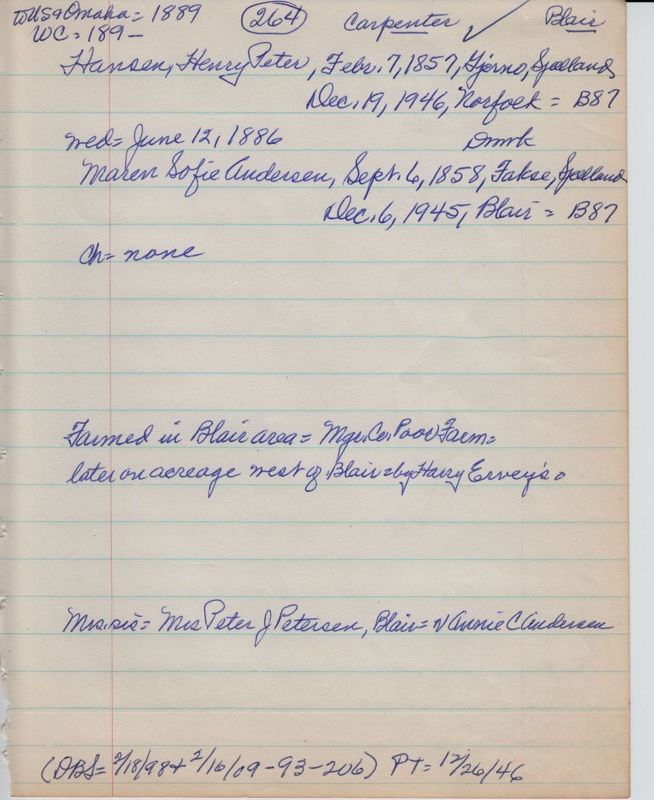 to US & Omaha = 1889 264 Carpenter ✓ Blair
WC = 189-
Hansen, Henry Peter, Febr. 7, 1857, Gjerno, Sjelland,
Dec. 19, 1946, Norfolk = B87
wed = June 12, 1886 Dnmrk
Maren Sofie Andersen, Sept. 6, 1858, Fakse, Sjelland
Dec. 6, 1945, Blair = B87
Ch = none
Farmed in Blair area = Mgr. Co. Poor Farm =
later on acreage west of Blair = by Harry Ervey's.
Mrs. sis = Mrs Peter J Petersen, Blair = Annie C Andersen
(DBS = 2/18/98 + 2/16/09 - 93 - 206) PT = 12/26/46